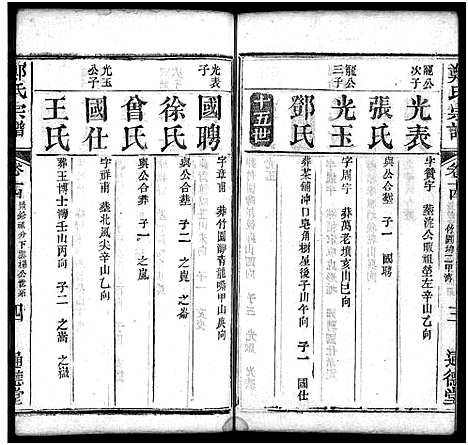 鄭氏宗譜
卷十四
三
通德堂
寵公次子
光表
字贊宇 葬沈公畈祖塋左辛山乙向
張氏
與公合葬 子一 國聘
寵公三子
光玉
字周宇 葬萬老墳亥山巳向
鄧氏
葬茶舖冲口皂角樹屋後子山午向 子一 國仕
十五世
光表子
國聘
字章甫 葬竹園靜青龍嘴甲山庚向
徐氏
與公合葬 子一 之崙
曾氏
與公合葬 子一 之嵐
光玉公子
國仕
字祥甫 葬北風尖辛山乙向
王氏
葬王博士灣壬山丙向 子二 之嵩 之嶽
鄭氏宗譜
卷十四
四
通德堂